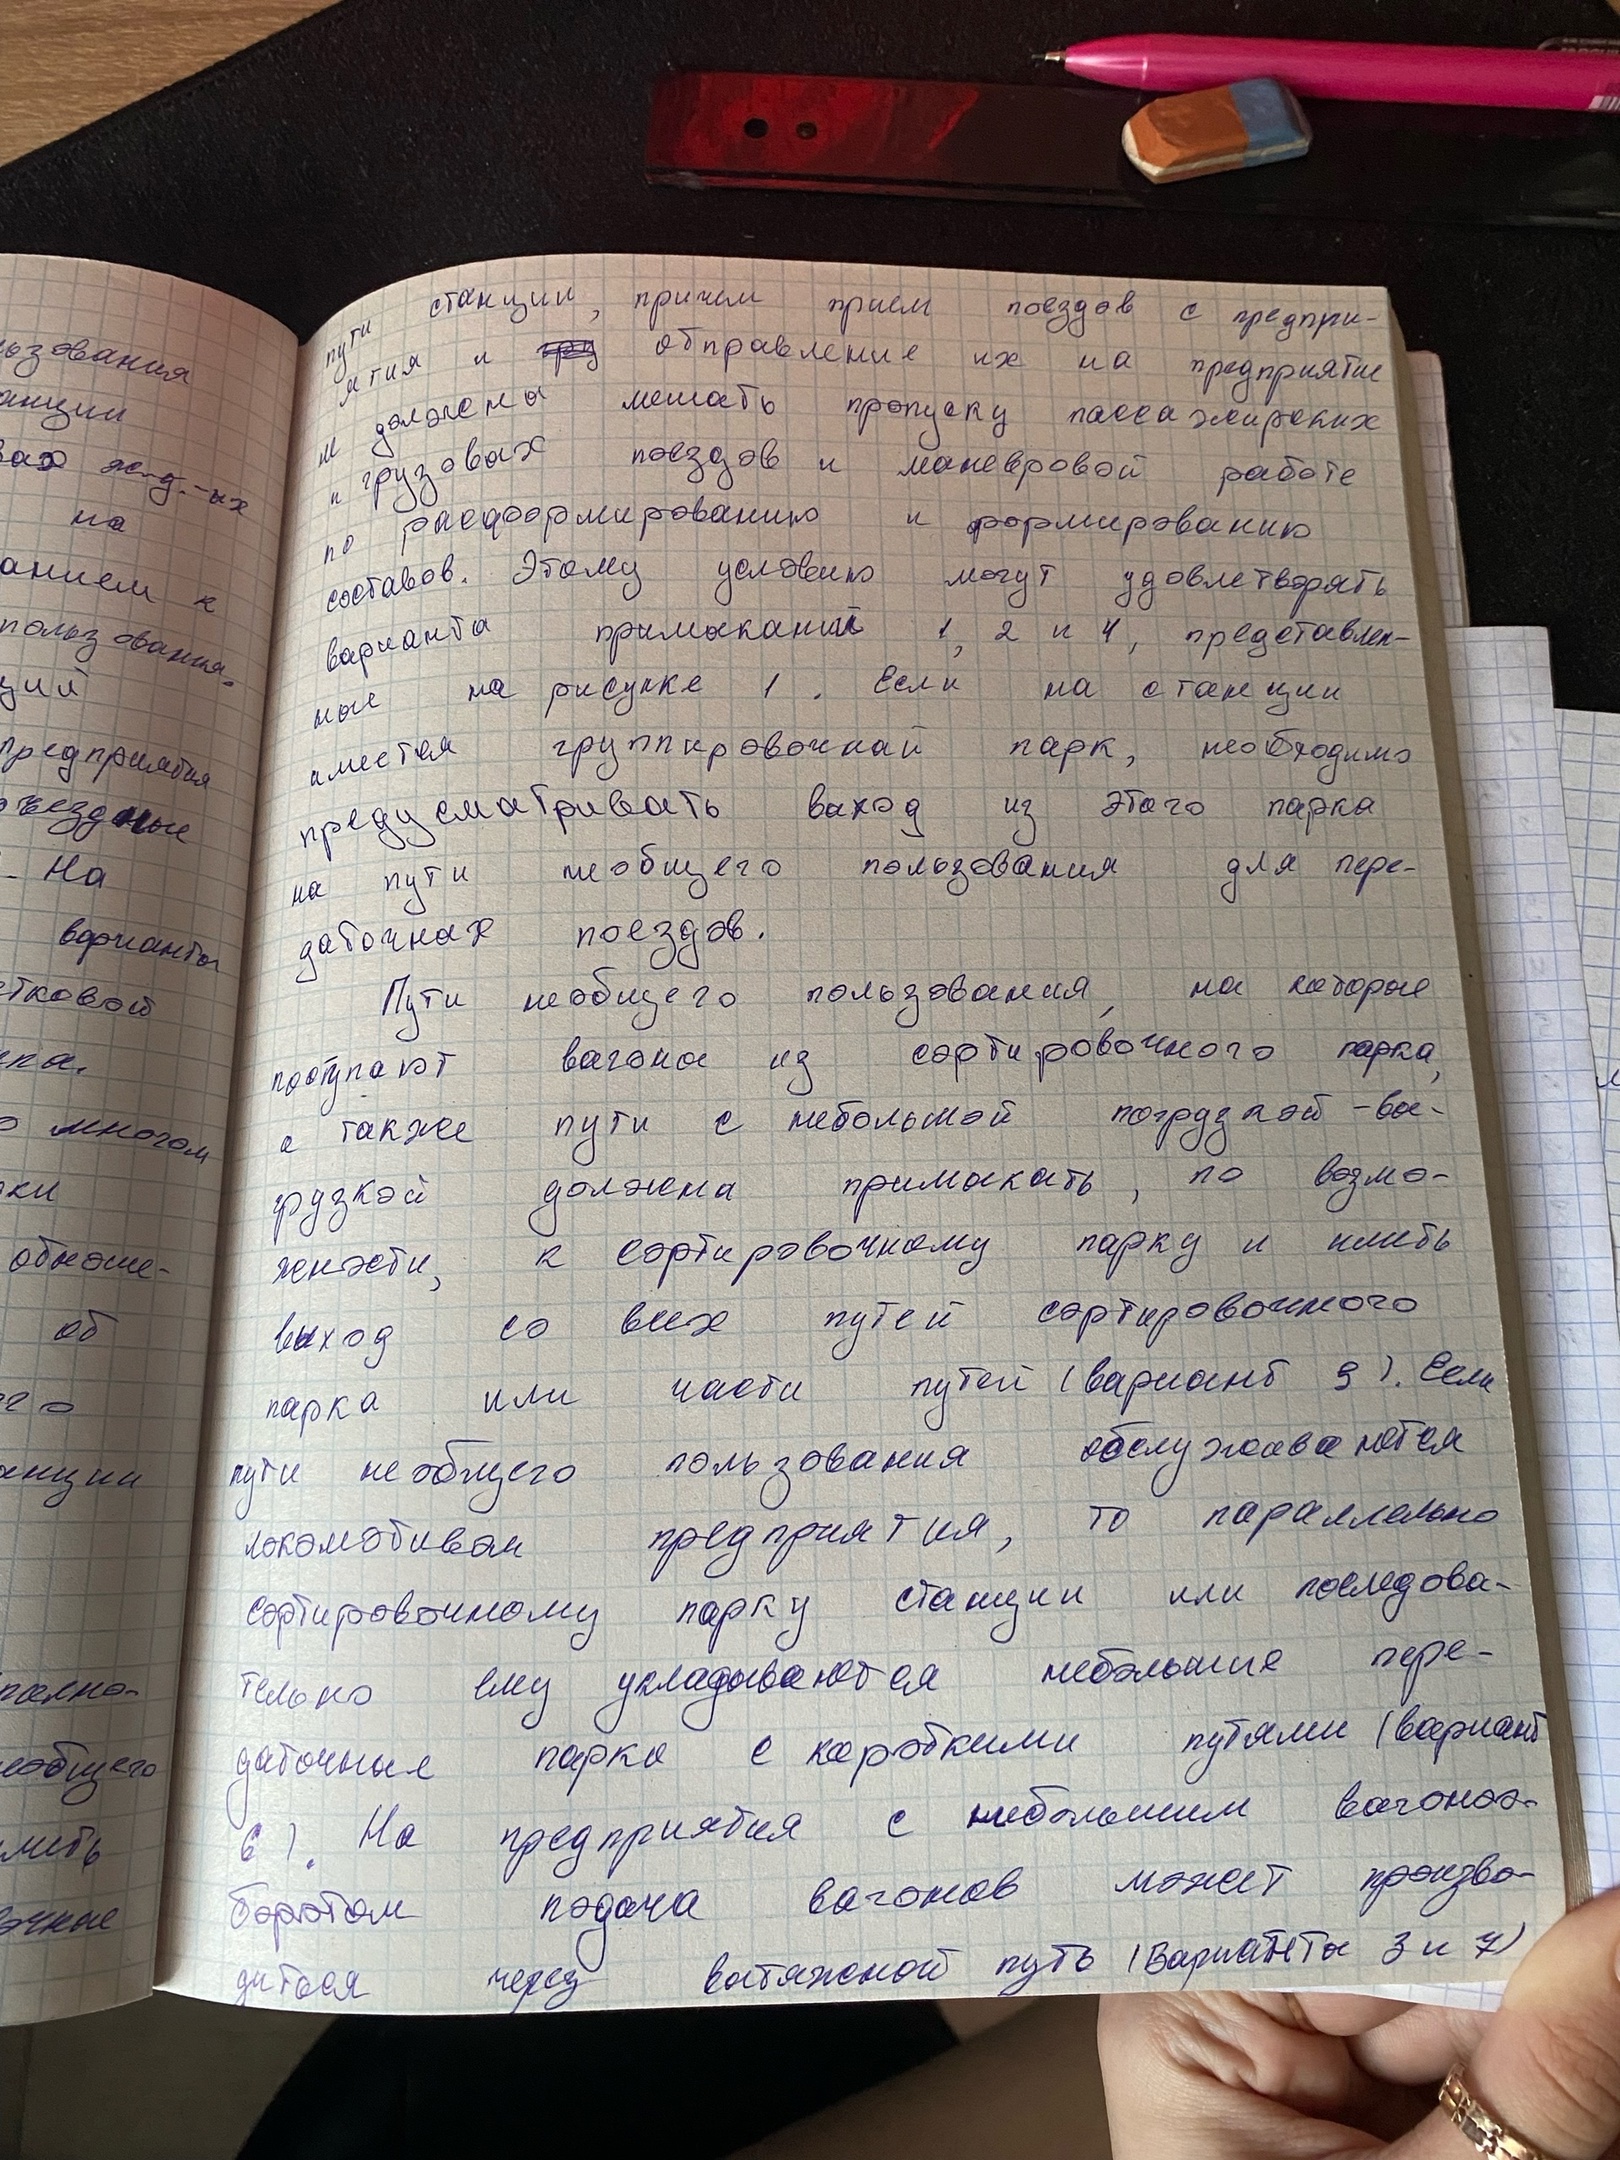 льзования
анции
вах ж-д.-ых
на
анием к
пользования.
ций
предприятия
На
варианты
стковой
о многом
обноше-
об
анции
необщего
иметь
пути станции, причем прием поездов с предпри-
ятия и отправление их на предприятие
не должены мешать пропуску пассажирских
и грузовых поездов и маневровой работе
по расформированию и формированию
составов. Этому условию могут удовлетворять
варианты примыканий 1, 2 и 4, представлен-
ные на рисунке 1. Если на станции
имеется группировочный парк, необходимо
предусматривать выход из этого парка
на пути необщего пользования для пере-
даточных поездов.
Пути необщего пользования, на которые
поступают вагоны из сортировочного парка,
а также пути с небольшой погрузкой-вы-
грузкой должны примыкать, по возмо-
жности, к сортировочному парку и иметь
выход со всех путей сортировочного
парка или части путей (вариант 5). Если
пути необщего пользования обслуживаются
локомотивом предприятия, то параллельно
сортировочному парку станции или последова-
тельно ему укладываются небольшие пере-
даточные парки с короткими путями (вариант
6). На предприятия с небольшим вагоноо-
боротом подача вагонов может произво-
диться через вытяжной путь (варианты 3 и 7)